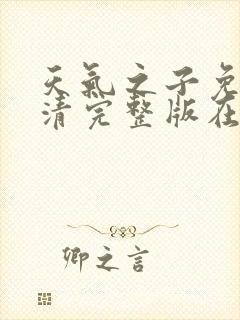 天氣之子免
清完整版在
卿之言